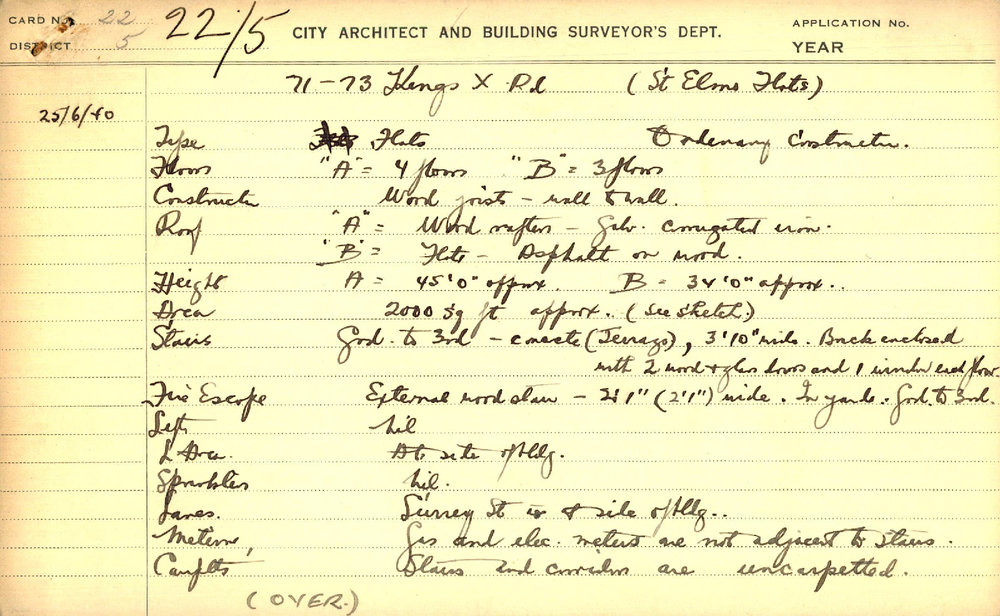 CARD No. 22
DISTRICT 5
22/5
CITY ARCHITECT AND BUILDING SURVEYOR'S DEPT.
APPLICATION No.
YEAR
71-73 Kings X Rd (St Elmo Flats)
25/6/40
Type Flats Ordinary Constructn.
Floors "A" = 4 floors "B" = 3 floors
Constructn Wood joists - wall to wall.
Roof "A" = Wood rafters - Galv. corrugated iron.
"B" = Flat - Asphalt on wood.
Height A = 45'0" approx. B = 34'0" approx..
Area 2000 sq ft approx. (See Sketch.)
Stairs Grd. to 3rd - concrete (Terrazo), 3'10" wide. Brick enclosed
with 2 wood & glass doors and 1 window each floor.
Fire Escape External wood stair - (2'1") wide. In yard. Grd. to 3rd.
Lifts Nil
L Area. At side of bldg.
Sprinklers Nil.
Lanes. Surrey St is side of bldg..
Meters, Gas and elec. meters are not adjacent to stairs.
Carpets Stairs and corridors are uncarpetted.
(OVER.)